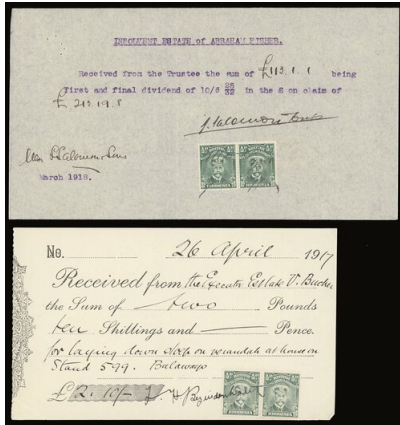 INSOLVENT ESTATE of ABRAHAM FISHER.
Received from the Trustee the sum of £113.1.1 being
First and final dividend of 10/6 25/32 in the £ on claim of
£ 213.19.8
March 1918.
No. 26 April 1917
Received from the Executor Estate V.
the Sum of two Pounds
ten Shillings and Pence.
for laying down on verandah at house on
Stand 599. Bulawayo
£ 2. 10/-